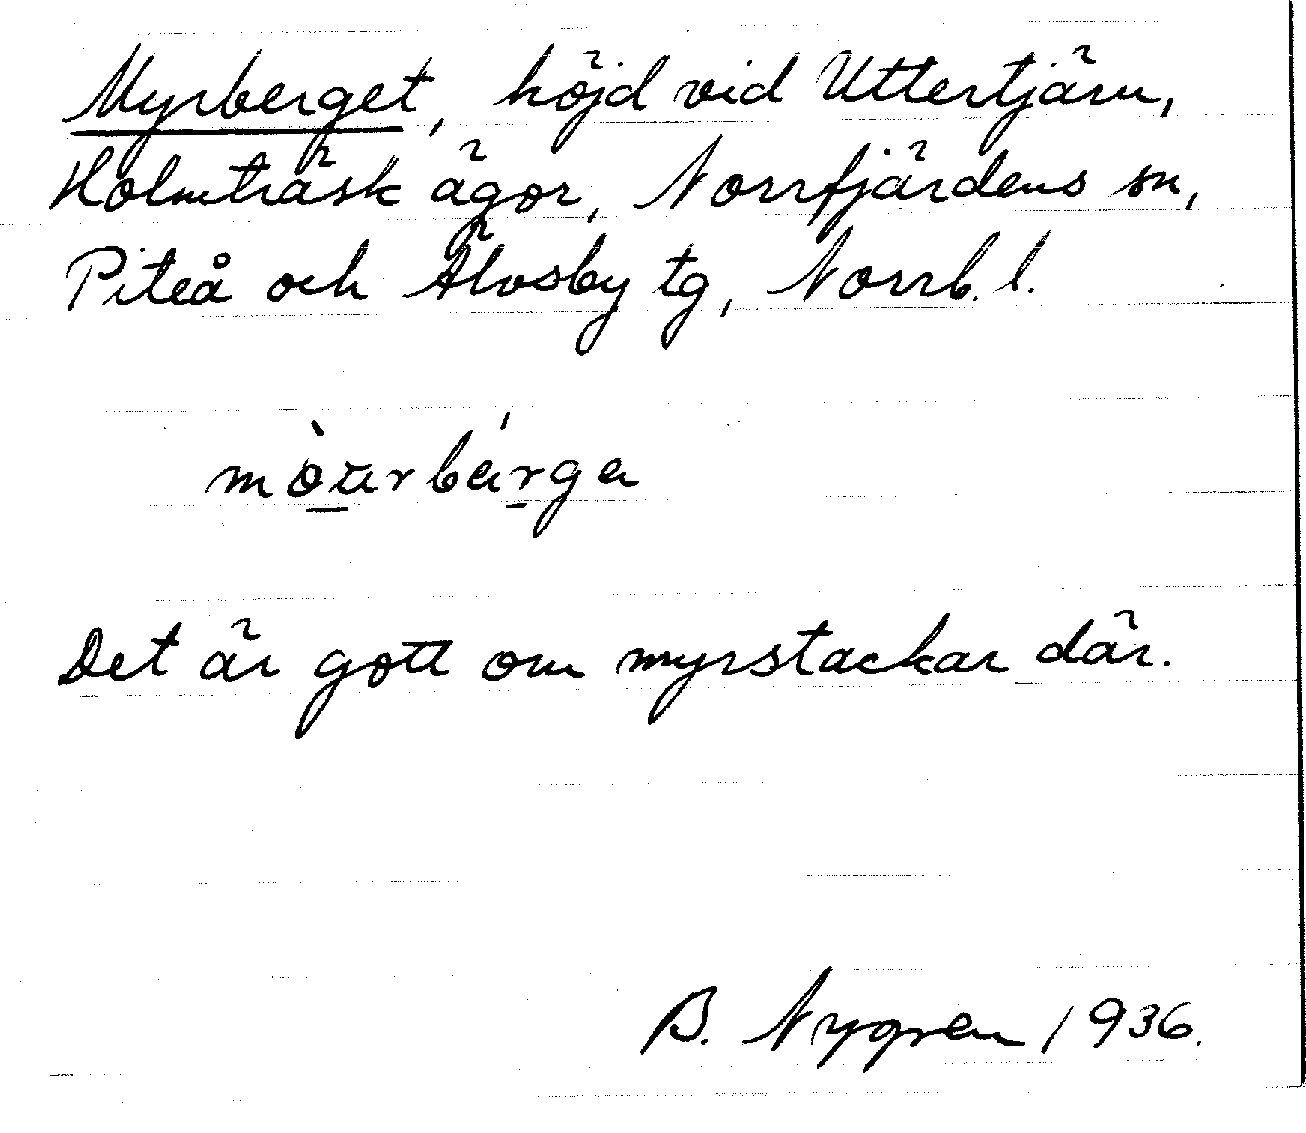 Myrberget, höjd vid Uttertjärn,
Holmträsk ägor, Norrfjärdens sn,
Piteå och Älvsby tg, Norrb. l.
Det är gott om myrstackar där.
B. Nygren 1936.